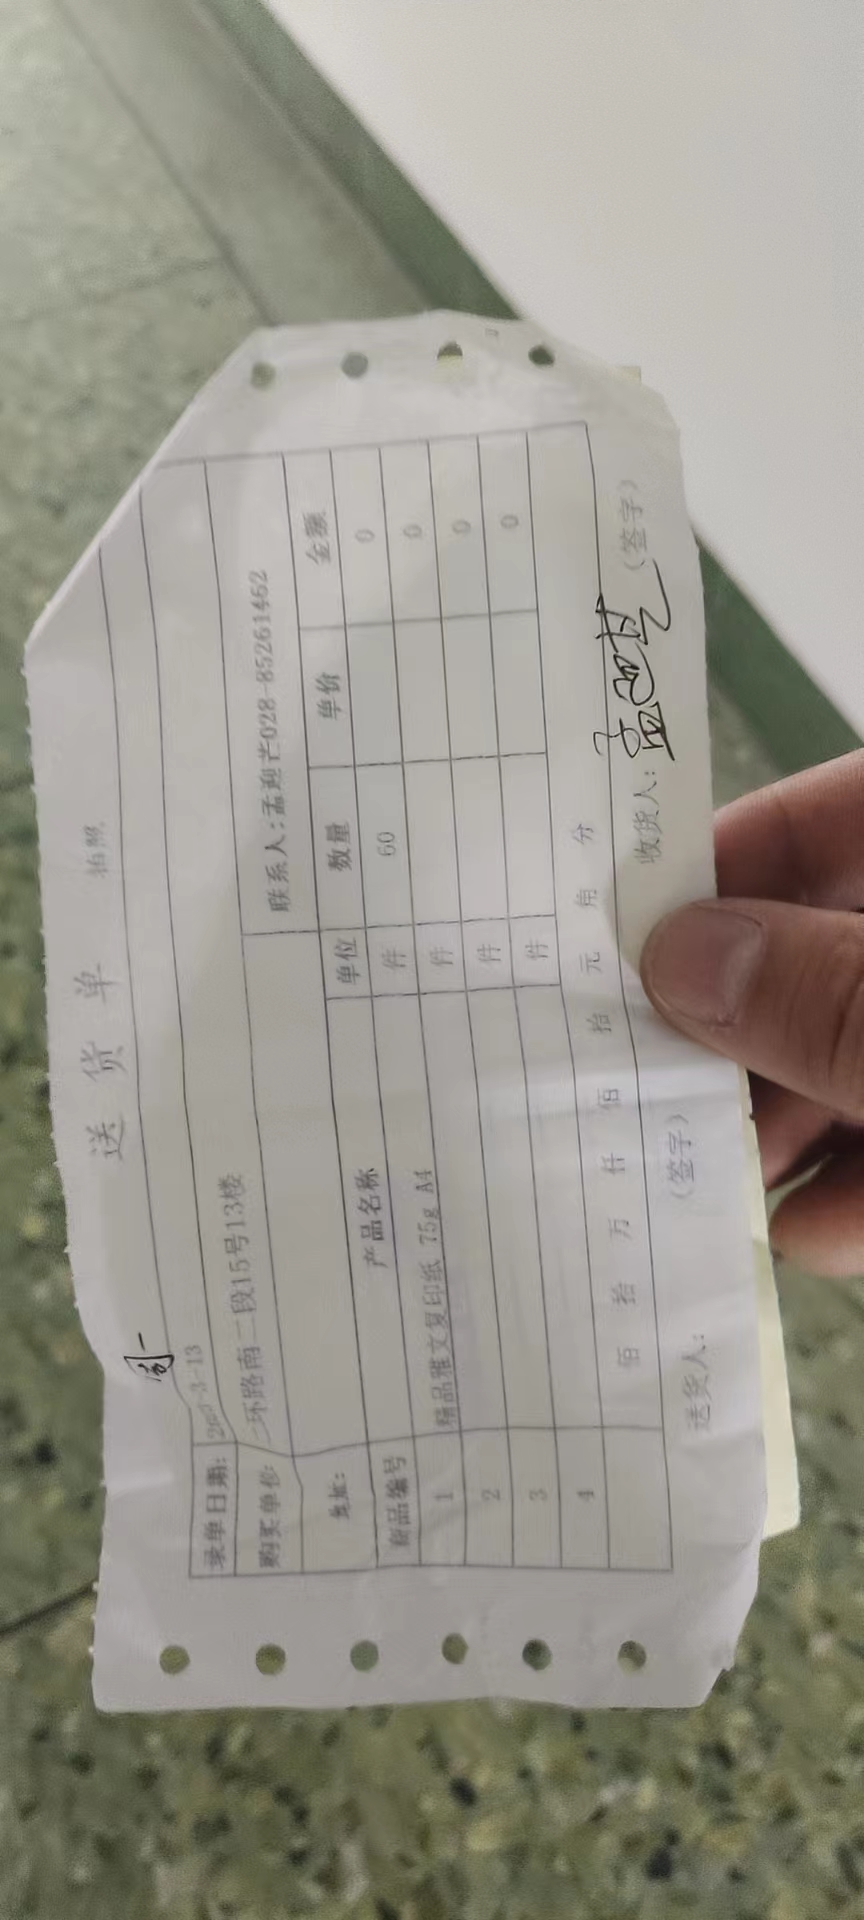 送货单 拍照
周一
录单日期: 3-13
购买单位: 二环路南二段15号13楼
地址: 联系人:孟迎芒028-85261462
商品编号 产品名称 单位 数量 单价 金额
1 精品雅文复印纸 75g A4 件 60 0
2 件 0
3 件 0
4 件 0
佰 拾 万 仟 佰 拾 元 角 分
送货人: (签字) 收货人: (签字)